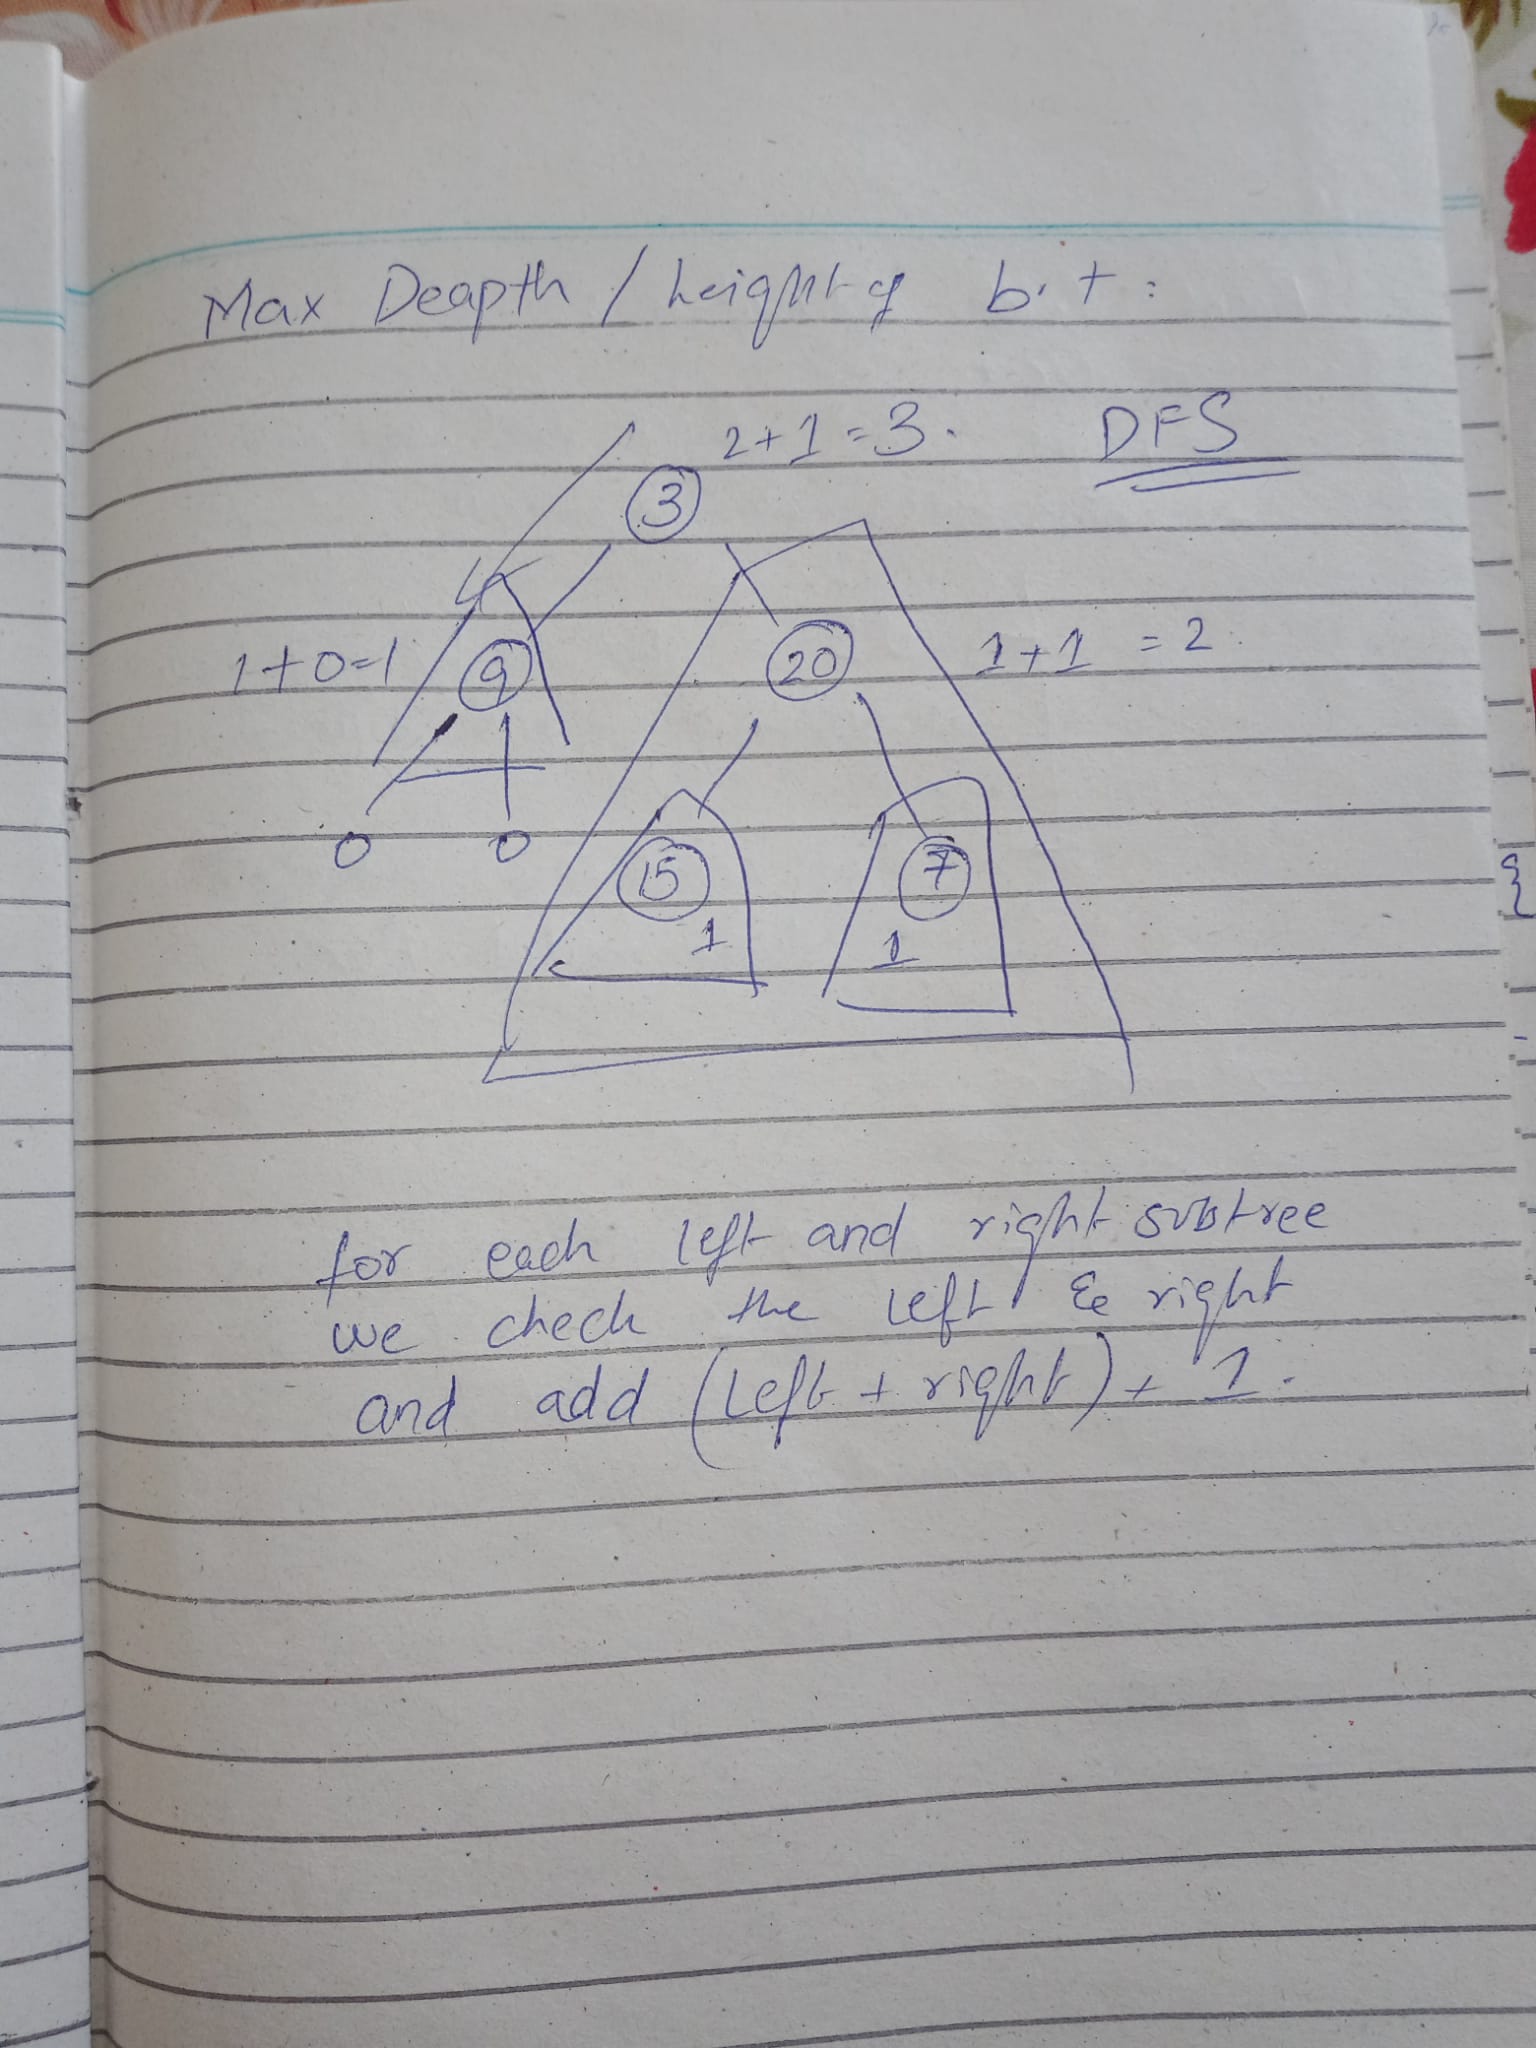 Max Deapth / height of b.t :
2+1=3.
DFS
3
1+0=1
9
20
1+1 = 2.
0
0
15
7
1
1
for each left and right subtree
we check the left & right
and add (left + right) + 1.